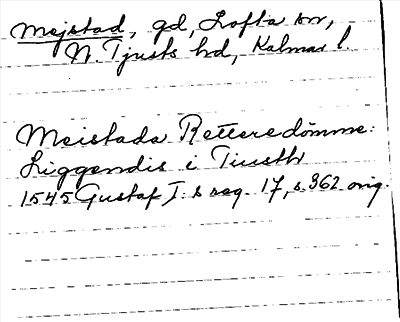 Mejstad, gd, Lofta sn,
N. Tjusts hd, Kalmar l.
Meistada Retteredömme:
Liggendis i Tiusth
1545 Gustaf I:s reg. 17, s. 362 orig.